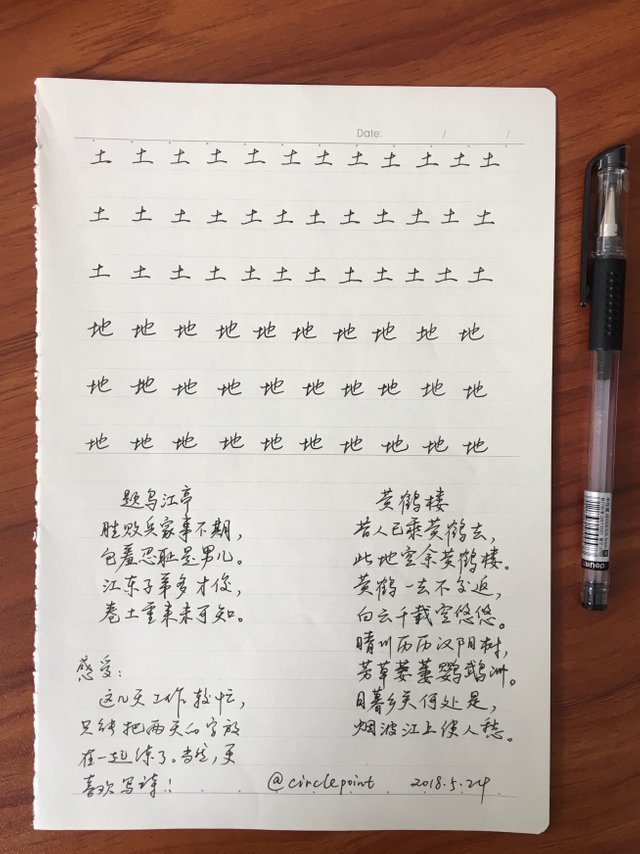 Date: / /
土 土 土 土 土 土 土 土 土 土 土 土
土 土 土 土 土 土 土 土 土 土 土 土
土 土 土 土 土 土 土 土 土 土 土 土
地 地 地 地 地 地 地 地 地 地
地 地 地 地 地 地 地 地 地 地
地 地 地 地 地 地 地 地 地 地
题乌江亭
胜败兵家事不期，
包羞忍耻是男儿。
江东子弟多才俊，
卷土重来未可知。
感受：
这几天工作较忙，
只能把两天的字放
在一起练了。当然，更
喜欢写诗！
黄鹤楼
昔人已乘黄鹤去，
此地空余黄鹤楼。
黄鹤一去不复返，
白云千载空悠悠。
晴川历历汉阳树，
芳草萋萋鹦鹉洲。
日暮乡关何处是，
烟波江上使人愁。
@circlepoint 2018.5.24
deli